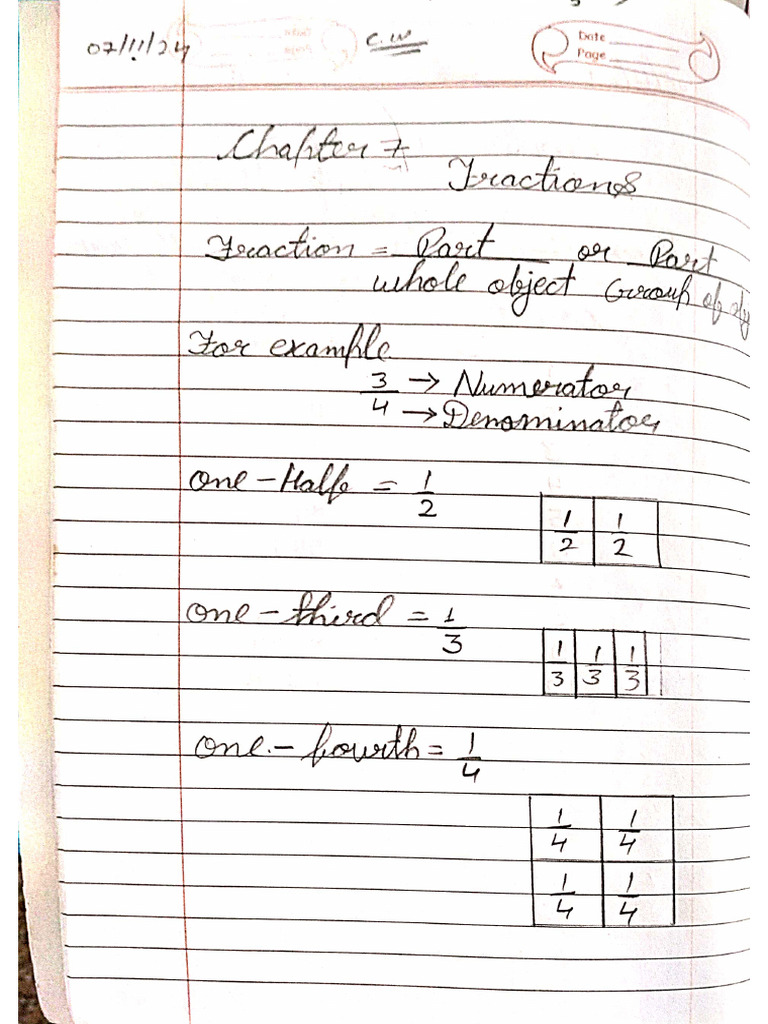 07/11/24 C.W Date
Page
Chapter 7
Fractions
Fraction = Part or Part
whole object Group of
For example
3 → Numerator
4 → Denominator
one-Half = 1
2
1 1
2 2
one-third = 1
3
1 1 1
3 3 3
one-fourth = 1
4
1 1
4 4
1 1
4 4